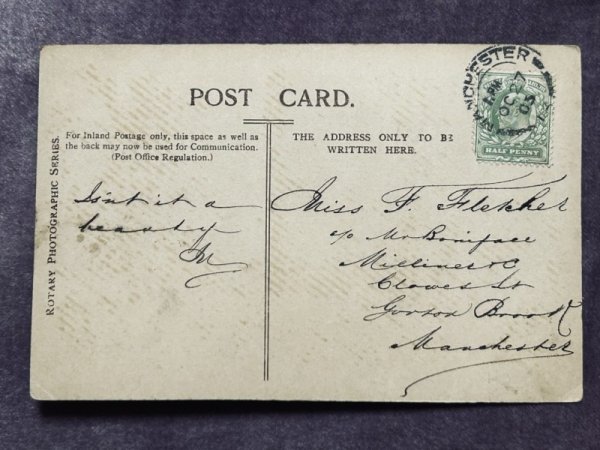 POST CARD.
For Inland Postage only, this space as well as
the back may now be used for Communication.
(Post Office Regulation.)
THE ADDRESS ONLY TO BE
WRITTEN HERE.
ROTARY PHOTOGRAPHIC SERIES.
Isn't it a
beauty
M
Miss F. Fletcher
c/o Mr Boniface
Milliner &c
Clowes St
Gorton Brook
Manchester
MANCHESTER
OC 27
03
HALF PENNY